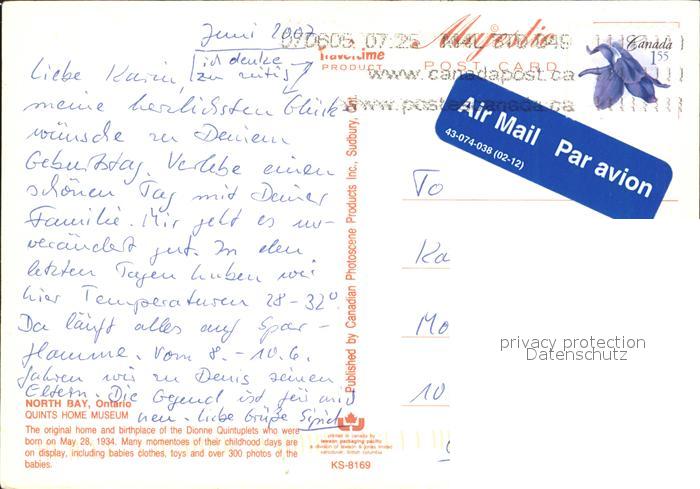 Juni 2007
070605 07:25
Majestic
Traveltime
PRODUCT
POST CARD
www.canadapost.ca
www.postescanada.ca
Canada
1.55
Air Mail Par avion
43-074-038 (02-12)
Liebe Karin,
ich denke
meine herzlichsten Glück-
wünsche zu Deinem
Geburtstag. Verlebe einen
schönen Tag mit Deiner
Familie. Mir geht es un-
verändert gut. In den
letzten Tagen haben wir
hier Temperaturen 28-32°.
Da läuft alles auf Spar-
flamme. Vom 8. - 10.6.
fahren wir zu Denis seinen
Eltern. Die Gegend ist für mich
neu. Liebe Grüße
To
Ka
Mo
10
privacy protection
Datenschutz
Published by Canadian Photoscene Products Inc., Sudbury, Ont.
NORTH BAY, Ontario
QUINTS HOME MUSEUM
The original home and birthplace of the Dionne Quintuplets who were
born on May 28, 1934. Many momentoes of their childhood days are
on display, including babies clothes, toys and over 300 photos of the
babies.
printed in canada by
lawson packaging pacific
a division of lawson & jones limited
vancouver, british columbia
KS-8169